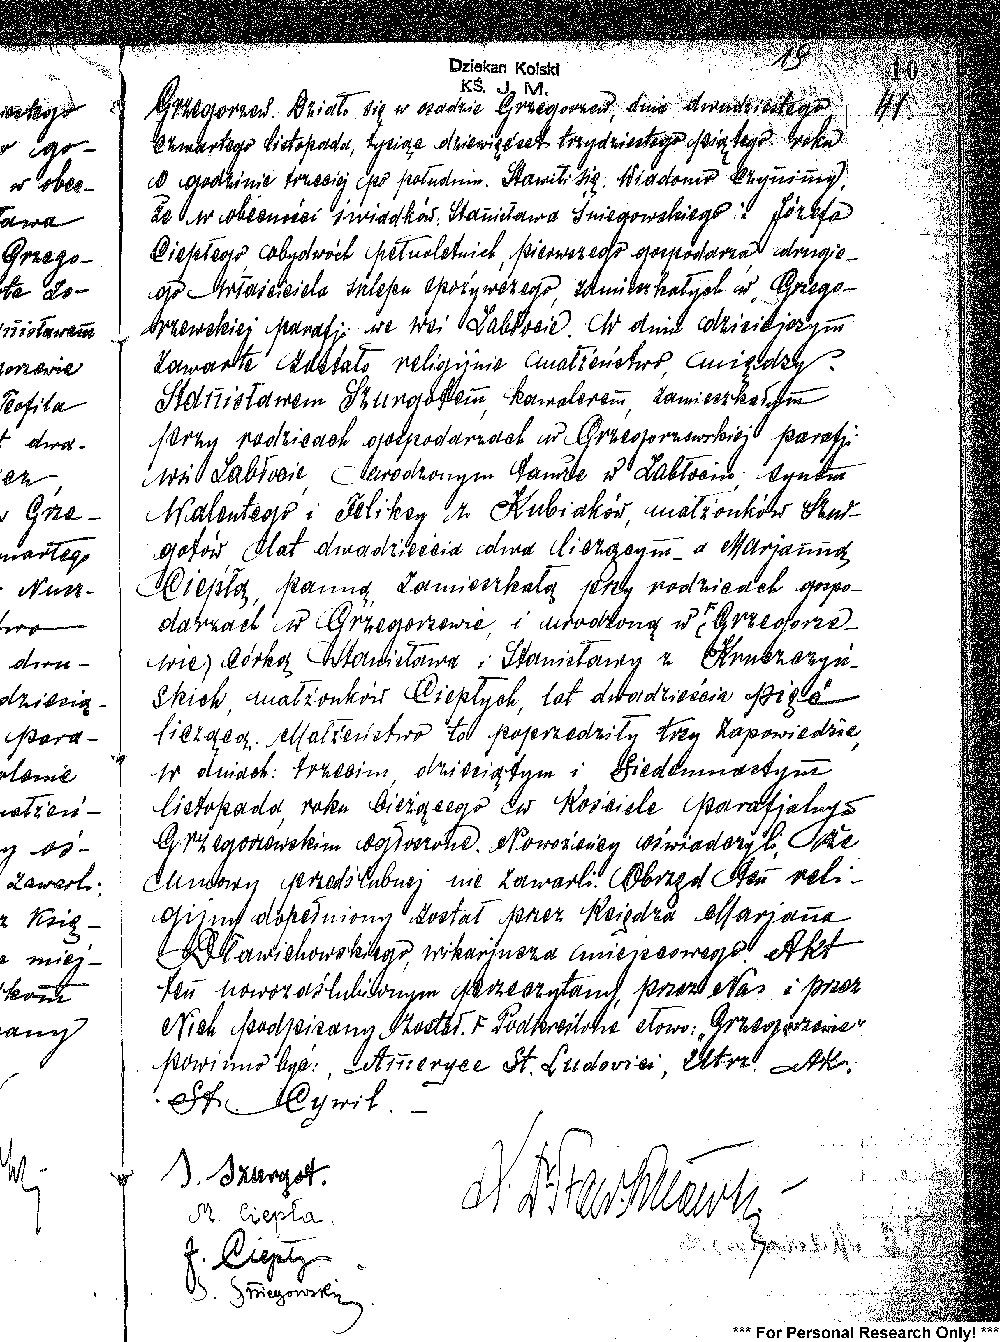 Dziekan Kolski
KŚ. J. M.
19
10
41.
wskiego
go-
w obec-
ława
Grzego-
Zo-
nisławem
gorzewie
Teofila
dwa-
Grze-
wartego
Nusz-
two
dwu-
dziesią-
para-
małżeń-
oś-
zawarli:
Księ-
miej-
Grzegorzew. Działo się w osadzie Grzegorzew, dnia dwudziestego
czwartego listopada, tysiąc dziewięćset trzydziestego piątego roku
o godzinie trzeciej po południu. Stawili się. Wiadomo czynimy,
że w obecności świadków, Stanisława Śniegowskiego i Józefa
Ciepłego obydwóch pełnoletnich, pierwszego gospodarza drugie-
go właściciela sklepu spożywczego, zamieszkałych w Grzego-
rzewskiej parafji we wsi Zabłocie. W dniu dzisiejszym
zawarte zostało religijnie małżeństwo, między:
Stanisławem Szurgotem, kawalerem, zamieszkałym
przy rodzicach gospodarzach w Grzegorzewskiej parafji
wsi Zabłocie, urodzonym tamże w Zabłociu, synem
Walentego i Feliksy z Kubiaków, małżonków Szur-
gotów lat dwadzieścia dwa liczącym a Marjanną
Ciepłą, panną, zamieszkałą przy rodzicach gospo-
darzach w Grzegorzewie, i urodzoną w "Grzegorze-
wie) córką Stanisława i Stanisławy z Kruszczyń-
skich, małżonków Ciepłych, lat dwadzieścia pięć
liczącą. Małżeństwo to poprzedziły trzy zapowiedzie,
w dniach: trzecim, dziesiątym i siedemnastym
listopada, roku bieżącego w Kościele parafjalnym
Grzegorzewskim ogłoszone. Nowożeńcy oświadczyli, że
umowy przedślubnej nie zawarli. Obrzęd ten reli-
gijny dopełniony został przez Księdza Marjana
Sławichowskiego, wikarjusza miejscowego. Akt
ten nowozaślubionym przeczytany, przez Nas i przez
Nich podpisany został. Podkreślone słowo: "Grzegorzewie"
powinno być: Ameryce St. Ludovici, Utrz. Ak.
St. Cywil. —
S. Szurgot.
M. Ciepła.
J. Ciepły
S. Śniegowski
*** For Personal Research Only! ***